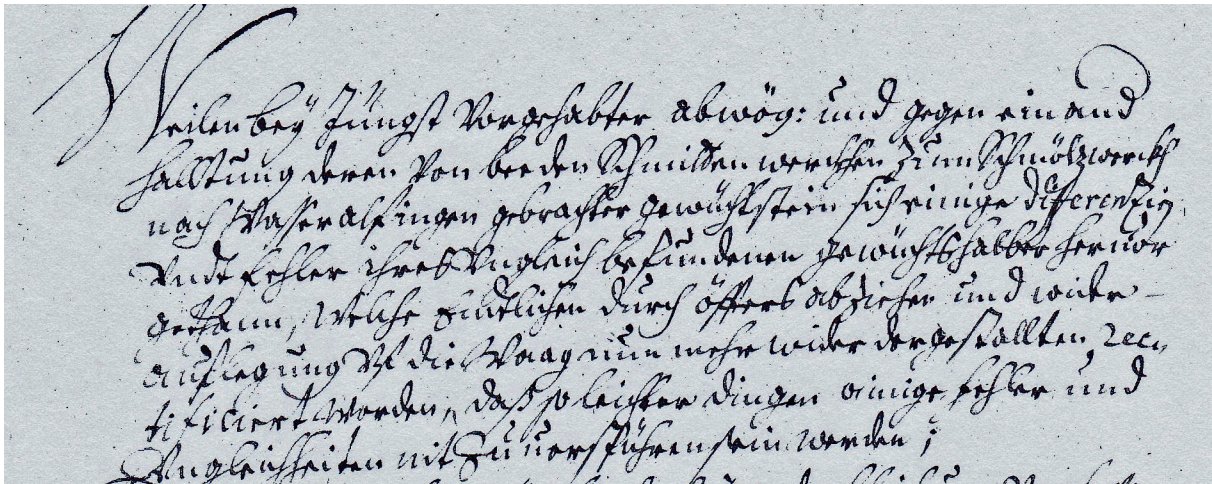 Weilen beÿ Jüngst Vorgehabter abwög: und gegen ein and
halltung deren Von beeden Schmitten werckhen zum Schmöltzwerckh
nach Wasseralfingen gebrachter gewüchtstein sich einige differentzien
Undt fehler ihres Ungleich befundenen gewüchts halber heruor
gethann, Welche Endtlichen durch öffters abziehen und wider
aufflegung Uf die Waag nun mehr wider dergestallten rec¬
tificiert worden, daß so leichter dingen einige fehler und
Ungleichheiten nit zu uerspühren sein werden;